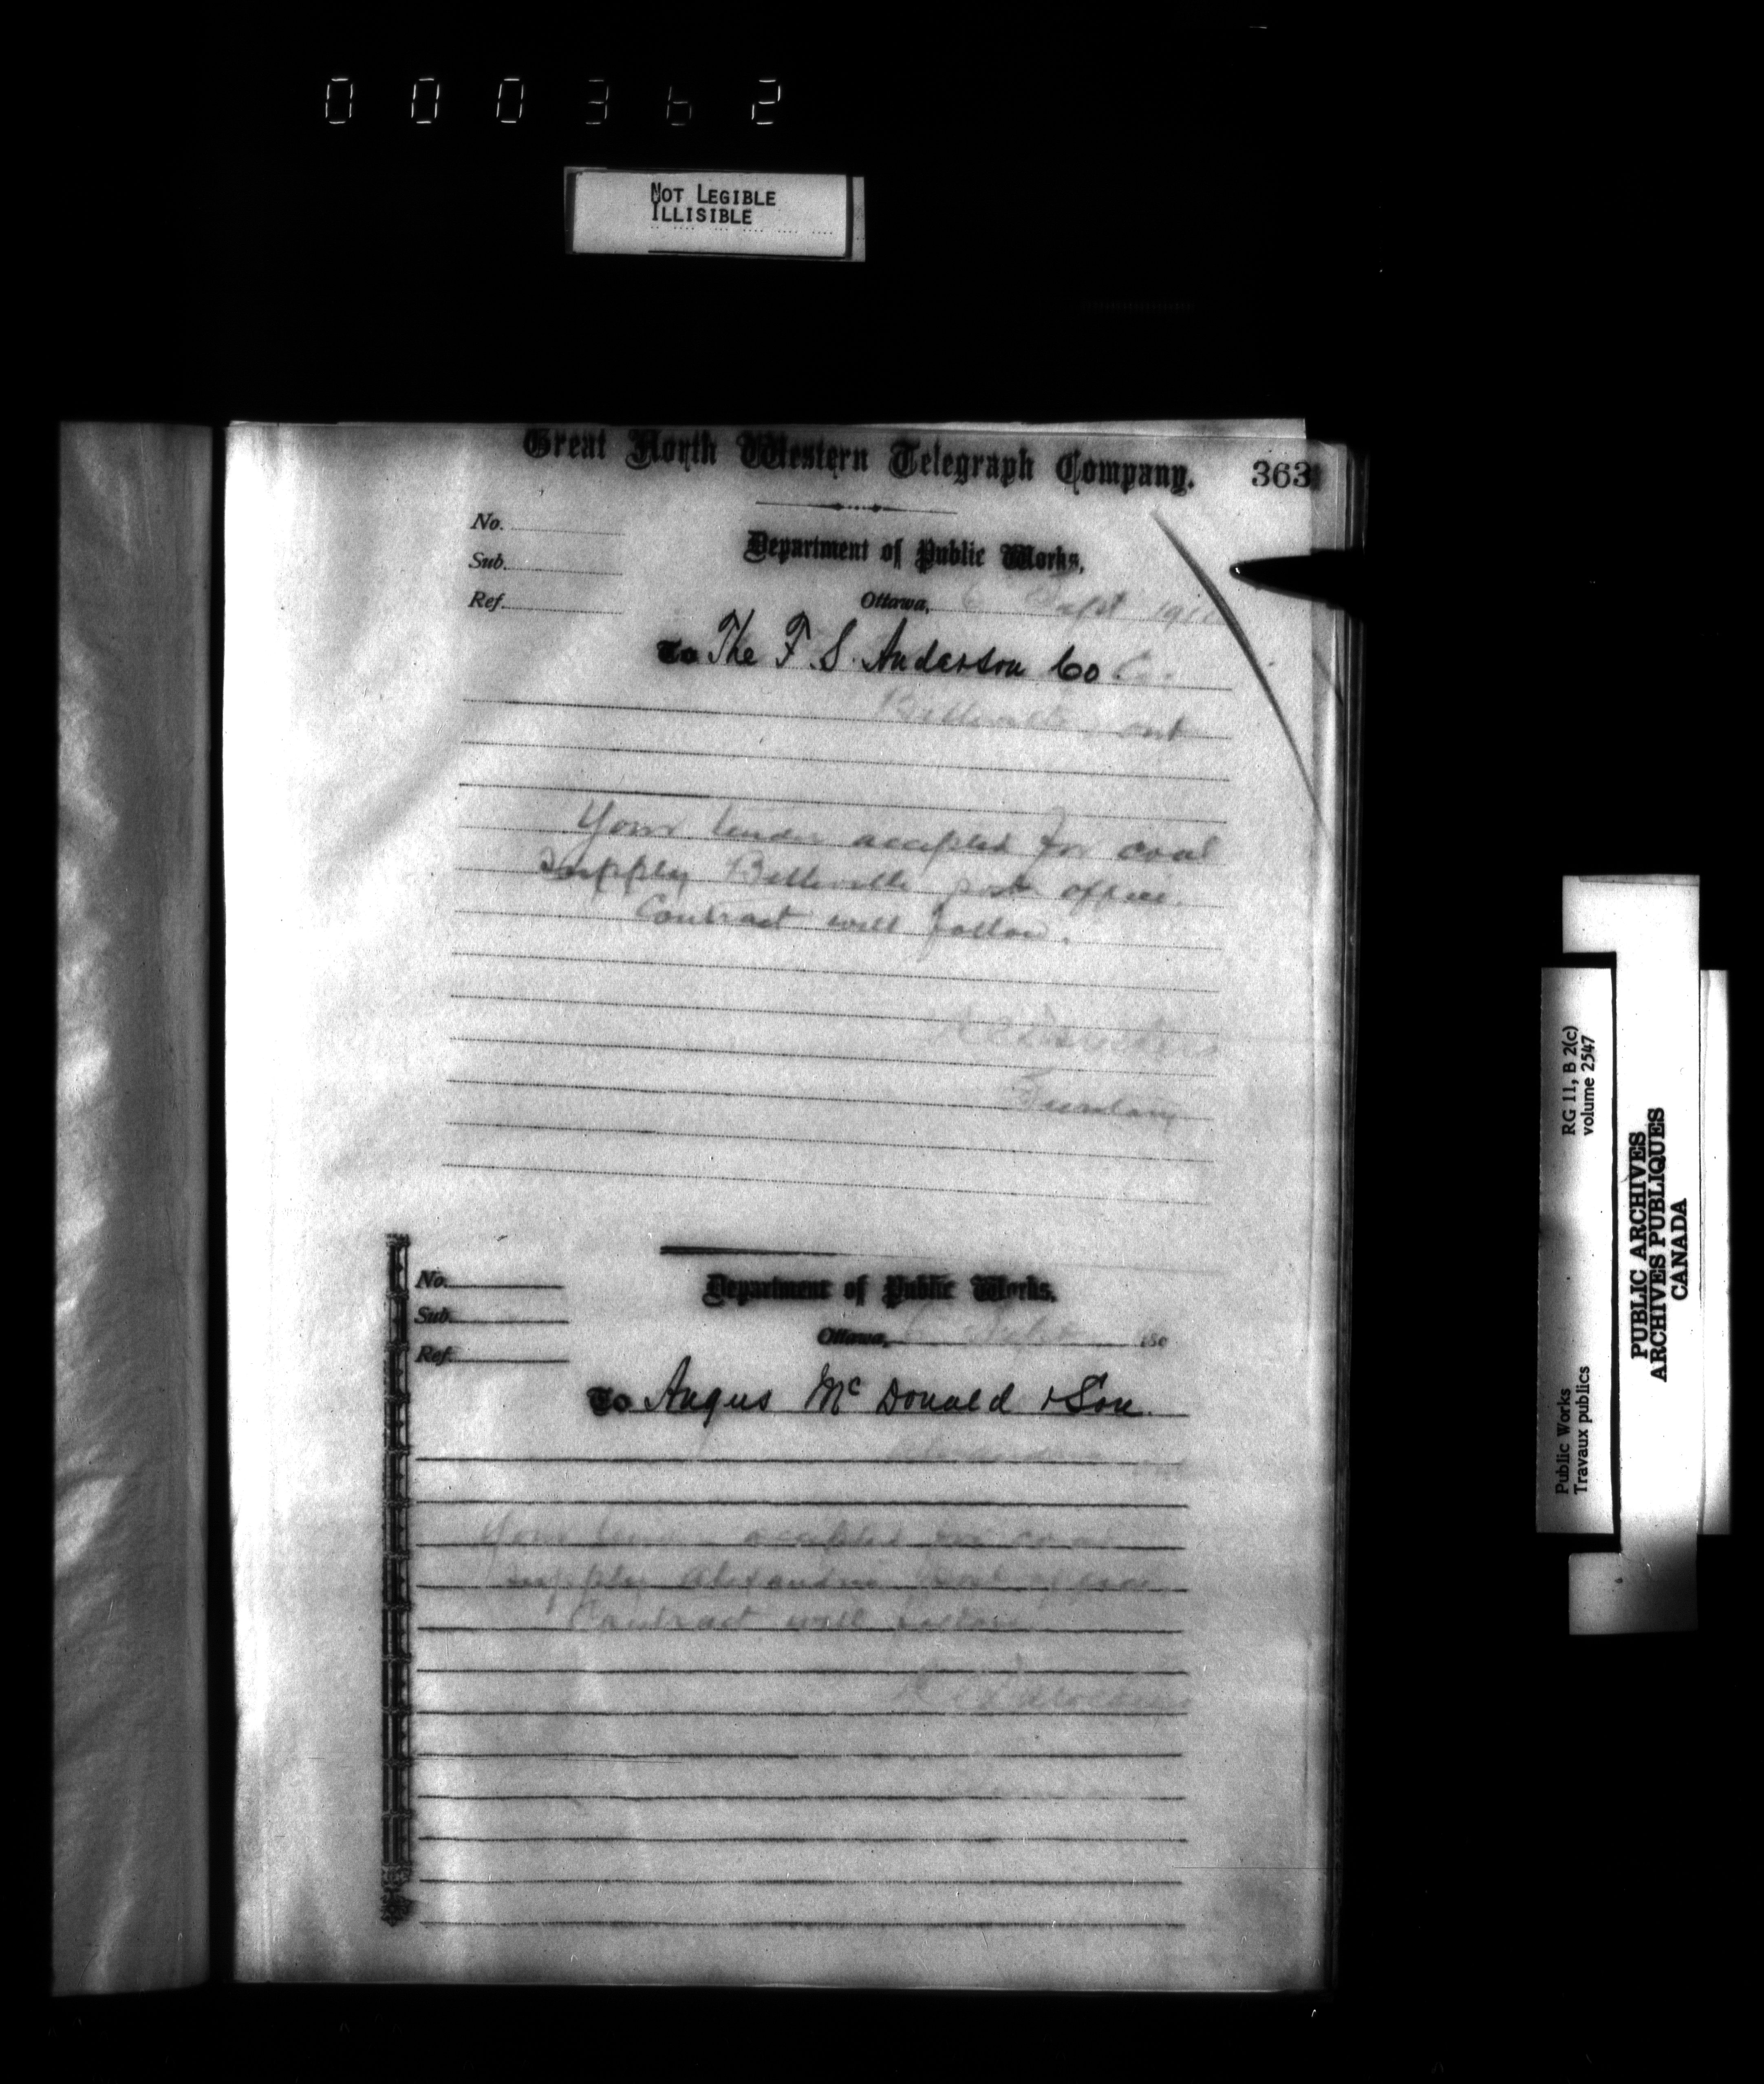 000362
NOT LEGIBLE
ILLISIBLE
Great North Western Telegraph Company.
363
No.
Sub.
Ref.
Department of Public Works,
Ottawa, 6 Sept 191
To The F. S. Anderson Co Co.
Belleville, Ont
Your tender accepted for coal
supply Belleville post office.
Contract will follow.
Secretary
No.
Sub.
Ref.
Department of Public Works.
Ottawa, 6 Sept
To Angus McDonald & Son
Alexandria Ont
Your tender accepted for coal
supply Alexandria post office
Contract will follow
RG 11, B 2(c)
volume 2547
Public Works
Travaux publics
PUBLIC ARCHIVES
ARCHIVES PUBLIQUES
CANADA